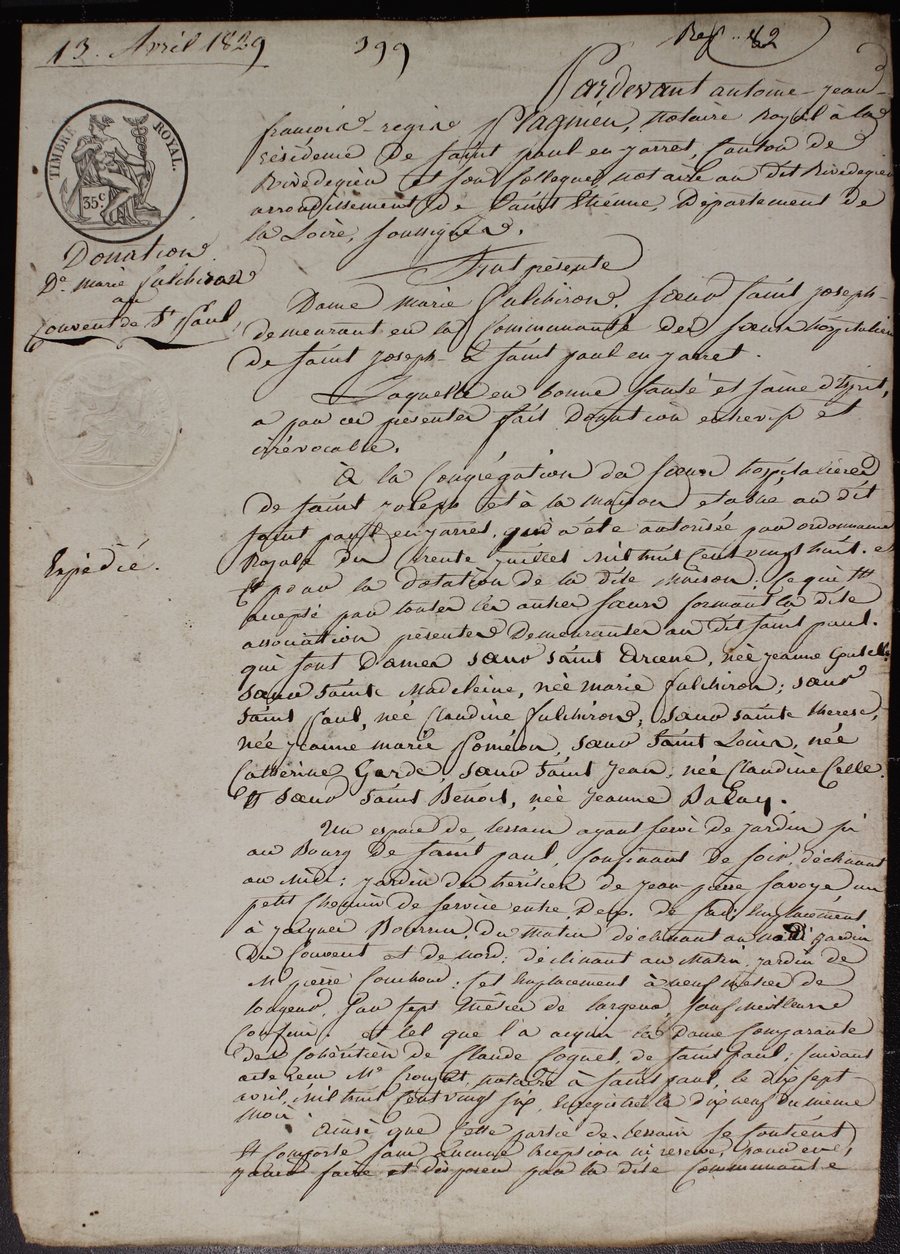 13. Avril 1829
399
Rep. 82
TIMBRE ROYAL.
35c
Donation
De Marie Fulchiron
au
Couvent de St Paul
Expédié.
Pardevant antoine-jean-
françois-regis Plagnieu, notaire Royal à la
résidence de saint paul-en-jarret, canton de
Rivedegier et son Collegue, notaire au dit Rivedegier
arrondissement de saint Etienne, Département de
la Loire, soussignés.
fut présente
Dame marie Fulchiron, soeur saint joseph-
demeurant en la Communauté des soeurs hospitalieres
de saint joseph à saint paul-en-jarret.
Laquelle en bonne santé et saine d'esprit,
a par ces présentes fait Donation entrevifs et
irrévocable.
à la Congrégation des soeurs hospitalières
de saint joseph et à la maison etablie au dit
saint paul en jarret, qui a été autorisée par ordonnance
Royale du trente juillet mil huit Cent vingt huit. et
pour la dotation de la dite maison. Ce qui est
accepté par toutes les autres soeurs formant la dite
association présentes demeurantes au dit saint paul.
qui sont Dames soeur saint arcene, née jeanne
soeur sainte Madeleine, née marie fulchiron; soeur
saint Paul, née Claudine fulchiron; soeur sainte therese,
née jeanne marie Poméon, soeur saint Louis, née
Catherine Garde, soeur saint jean, née Claudine Celle.
Et soeur saint Benoit, née jeanne
Un espace de terrain ayant servi de jardin sis
au Bourg de saint paul, confinant de soir déclinant
au midi; jardin des héritiers de jean-pierre Savoye un
petit chemin de service entre deux. de emplacement
à jacques Bourrin, du matin déclinant au jardin
du Couvent et de nord; déclinant au matin, jardin de
Mr pierre; Cet emplacement à neuf mètres de
longeur, sur sept mètres de largeur, sauf meilleurs
Confins. et tel que l'a acquis la Dame Comparante
des Cohéritiers de Claude Coquet, de saint paul; suivant
acte recu Me Crouzet, notaire à saint paul, le dix sept
avril mil huit Cent vingt six, enregistré le dix neuf du même
mois
Ainsi que Cette partie de terrain se Contient
et Comporte sans aucune exception ni reserve,
jouir faire et disposer par la dite Communauté